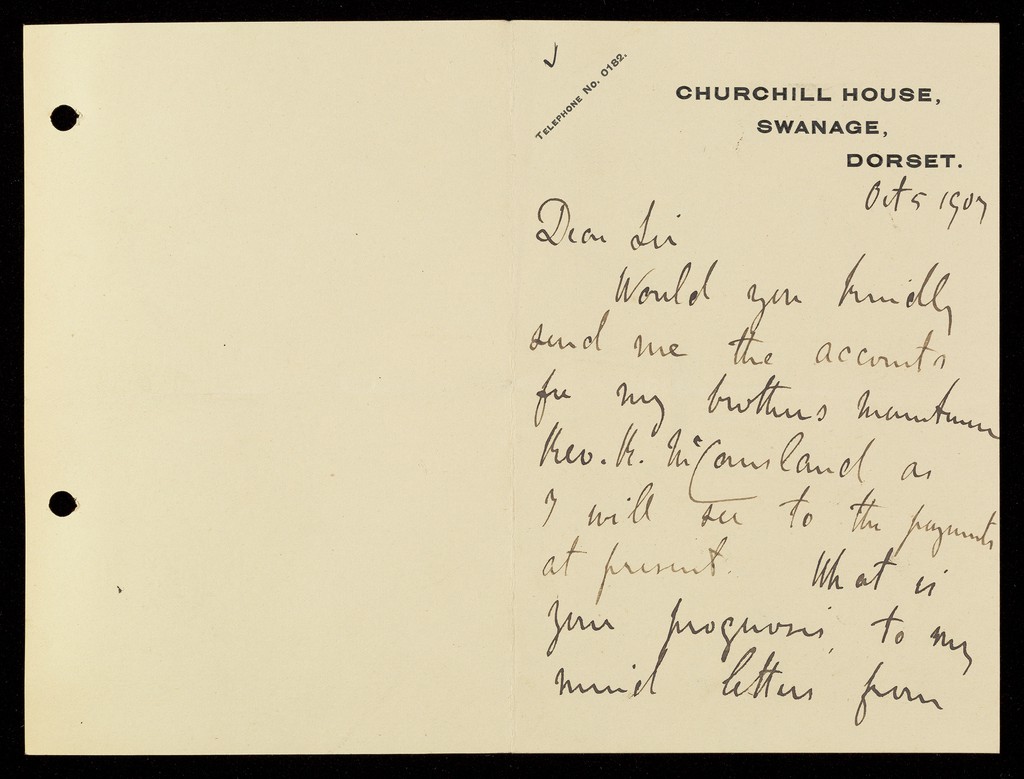 TELEPHONE No. 0182.
CHURCHILL HOUSE,
SWANAGE,
DORSET.
Oct 5 1907
Dear Sir
Would you kindly
send me the accounts
for my brothers maintenance
Rev. R. McCausland as
I will see to the payments
at present. What is
your prognosis, to my
mind letters from